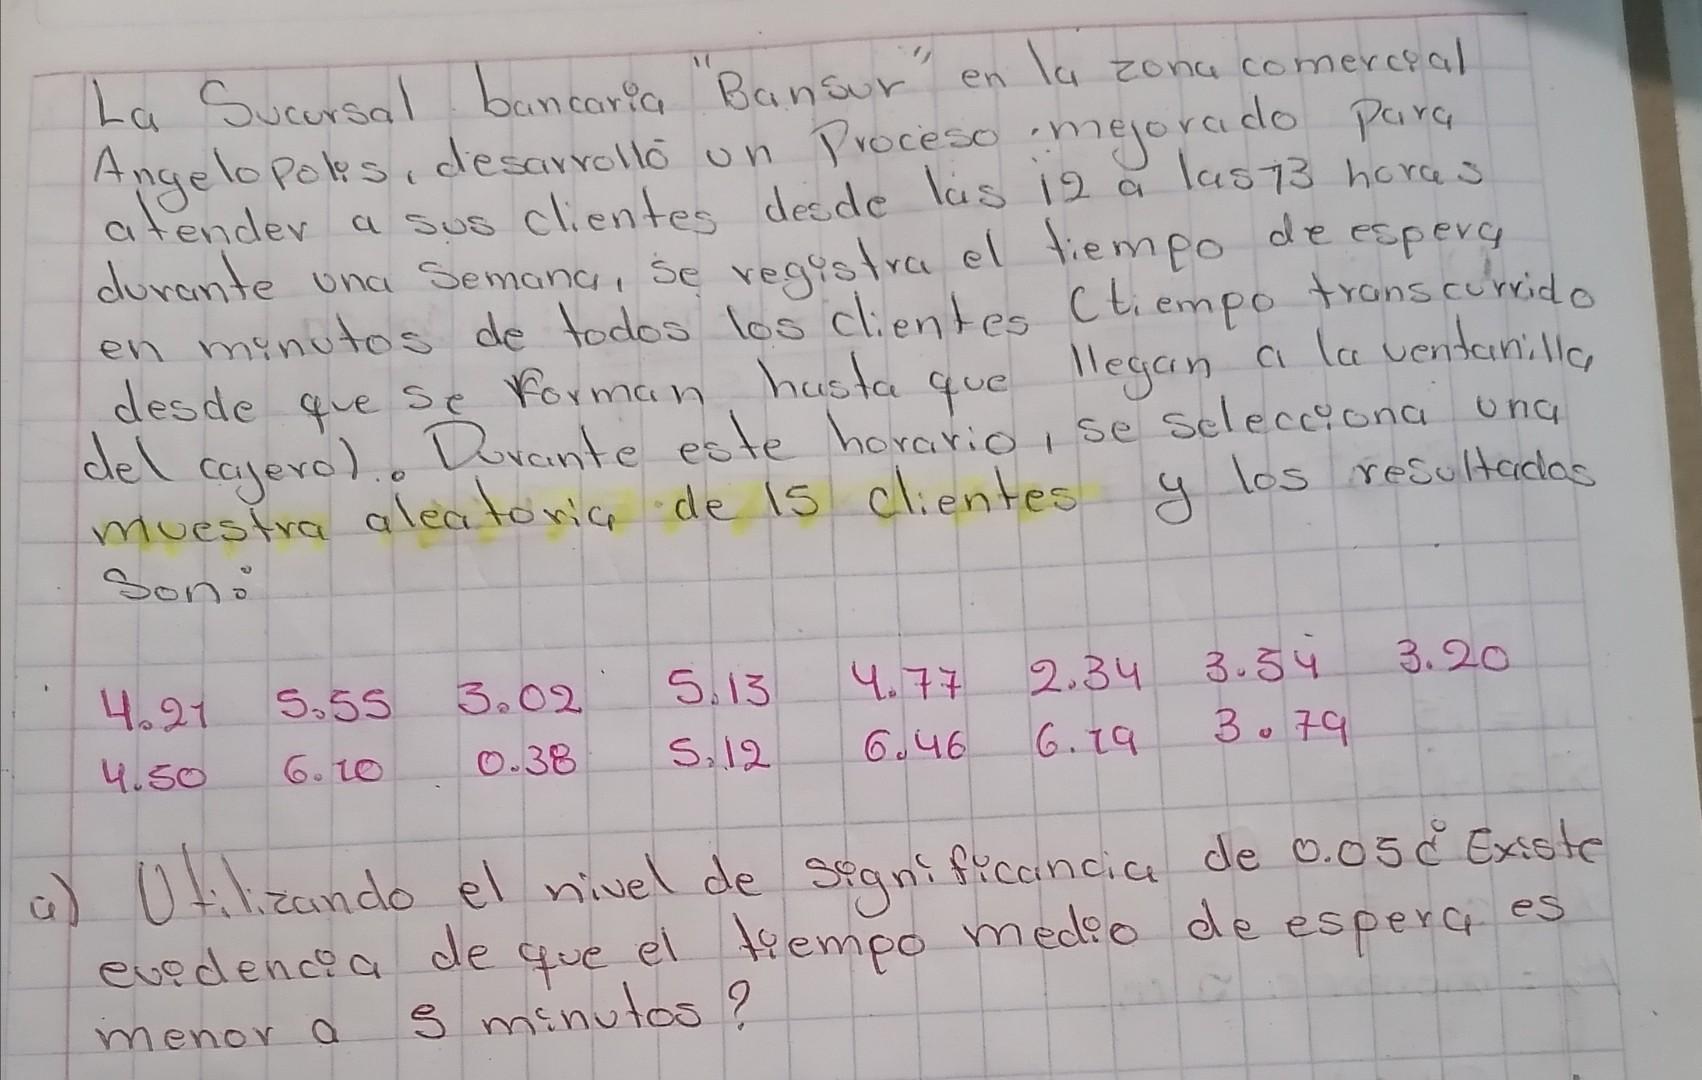 La Sucursal bancaria "Bansur" en la zona comercial
Angelopolis, desarrolló un Proceso mejorado para
atender a sus clientes desde las 12 a las 13 horas
durante una semana, se registra el tiempo de espera
en minutos de todos los clientes (tiempo transcurrido
desde que se forman hasta que llegan a la ventanilla
del cajero). Durante este horario, se selecciona una
muestra aleatoria de 15 clientes y los resultados
son:
4.21 5.55 3.02 5.13 4.77 2.34 3.54 3.20
4.50 6.10 0.38 5.12 6.46 6.19 3.79
a) Utilizando el nivel de significancia de 0.05 ¿Existe
evidencia de que el tiempo medio de espera es
menor a 5 minutos?